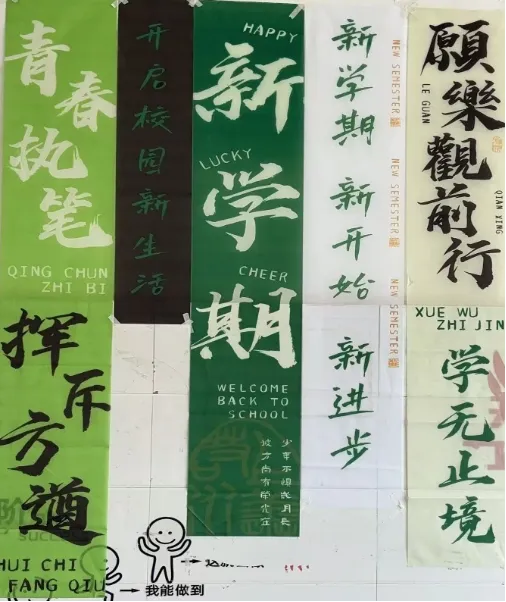 青春执笔
QING CHUN
ZHI BI
挥斥方遒
HUI CHI
FANG QIU
success
开启校园新生活
HAPPY
新
LUCKY
学
CHEER
期
WELCOME
BACK TO
SCHOOL
少年不惧岁月长
彼方尚有荣光在
新学期 新开始 新进步
NEW SEMESTER
NEW SEMESTER
NEW SEMESTER
願樂觀前行
LE GUAN
QIAN XING
XUE WU
ZHI JIN
学无止境
我能做到